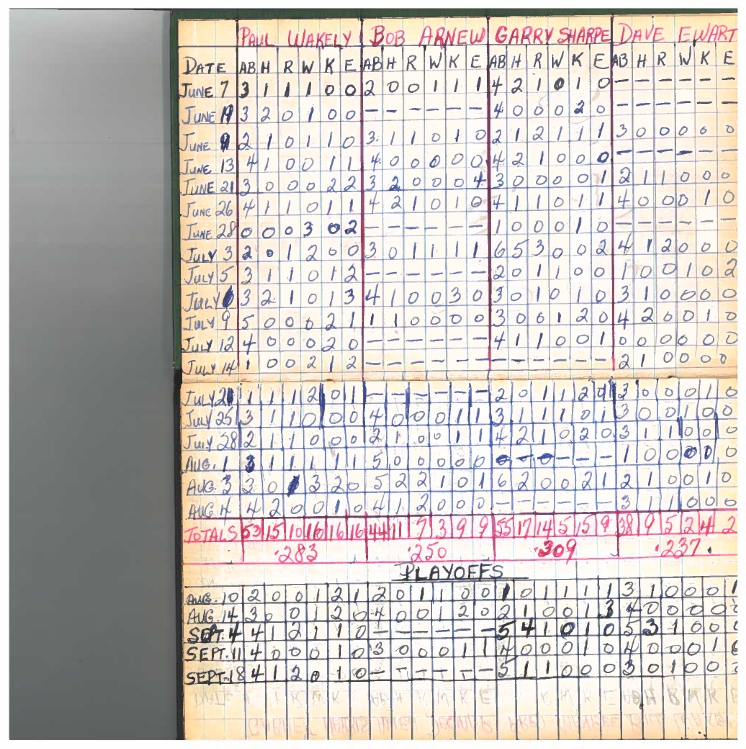 PAUL WAKELY BOB ARNEW GARRY SHARPE DAVE EWART
DATE AB H R W K E AB H R W K E AB H R W K E AB H R W K E
JUNE 7 3 1 1 1 0 0 2 0 0 1 1 1 4 2 1 0 1 0 – – – – – –
JUNE 3 2 0 1 0 0 – – – – – – 4 0 0 0 2 0 – – – – – –
JUNE 9 2 1 0 1 1 0 3 1 1 0 1 0 2 1 2 1 1 1 3 0 0 0 0 0
JUNE 13 4 1 0 0 1 1 4 0 0 0 0 0 4 2 1 0 0 0 – – – – – –
JUNE 21 3 0 0 0 2 2 3 2 0 0 0 4 3 0 0 0 0 1 2 1 1 0 0 0
JUNE 26 4 1 1 0 1 1 4 2 1 0 1 0 4 1 1 0 1 1 4 0 0 0 1 0
JUNE 28 0 0 0 3 0 2 – – – – – – 1 0 0 0 1 0 – – – – – –
JULY 3 2 0 1 2 0 0 3 0 1 1 1 1 6 5 3 0 0 2 4 1 2 0 0 0
JULY 5 3 1 1 0 1 2 – – – – – – 2 0 1 1 0 0 1 0 0 1 0 2
JULY 3 2 1 0 1 3 4 1 0 0 3 0 3 0 1 0 1 0 3 1 0 0 0 0
JULY 9 5 0 0 0 2 1 1 1 0 0 0 0 3 0 0 1 2 0 4 2 0 0 1 0
JULY 12 4 0 0 0 2 0 – – – – – – 4 1 1 0 0 1 0 0 0 0 0 0
JULY 14 1 0 0 2 1 2 – – – – – – – – – – – – 2 1 0 0 0 0
JULY 1 1 1 2 0 1 – – – – – – 2 0 1 1 2 3 0 0 0 1 0
JULY 25 3 1 1 0 0 0 4 0 0 0 1 1 3 1 1 1 0 1 3 0 0 1 0 0
JULY 28 2 1 1 0 0 0 2 1 0 0 1 1 4 2 1 0 2 0 3 1 1 0 0 0
AUG. 1 3 1 1 1 1 1 5 0 0 0 0 0 – – – – – 1 0 0 0 0 0
AUG. 3 3 0 1 3 2 0 5 2 2 1 0 1 6 2 0 0 2 1 2 1 0 0 1 0
AUG. 4 4 2 0 0 1 0 4 1 2 0 0 0 – – – – – – 3 1 1 0 0 0
TOTALS 53 15 10 16 16 16 44 11 7 3 9 9 55 17 14 5 15 9 38 9 5 2 4 2
.283 .250 .309 .237.
PLAYOFFS
AUG. 10 2 0 0 1 2 1 2 0 1 1 0 0 1 0 1 1 1 1 3 1 0 0 0 1
AUG. 14 3 0 0 1 2 0 4 0 0 1 2 0 2 1 0 0 1 3 4 0 0 0 0
SEPT. 4 4 1 2 1 1 0 – – – – – – 5 4 1 0 1 0 5 3 1 0 0
SEPT. 11 4 0 0 0 1 0 3 0 0 0 1 1 4 0 0 0 0 1 4 0 0 0 1
SEPT. 18 4 1 2 0 1 0 – – – – – – 5 1 1 0 0 0 3 0 1 0 0